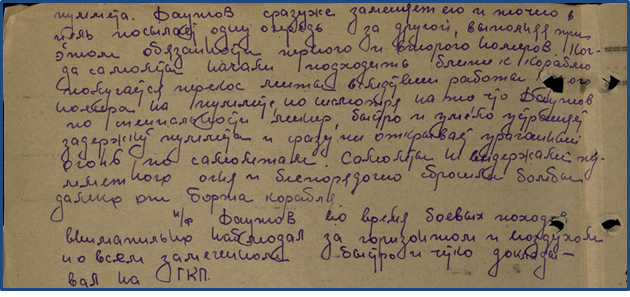 пулмёта. Фаутов сразуже замещает его и точно в
цель посылает одну очередь за другой, выполняя при
этом обязаности первого и второго номеров. Ког-
да самолёты начали подходить ближе к кораблю
получается перекос ленты вследствии работы одного
номера на пулмёте, но несмотря на то что Фаутов
по специальности пекарь, быстро и умело устраняет
задержку пулмёта и сразу же открывает ураганный
огонь по самолётам. Самолёты не выдержали пу-
лмётного огня и беспорядочно сбросили бомбы
далеко от борта корабля.
к/ф Фаутов во время боевых походов
внимательно наблюдал за горизонтом и воздухом
и о всем замеченном быстро и чётко доклады-
вал на ГКП.